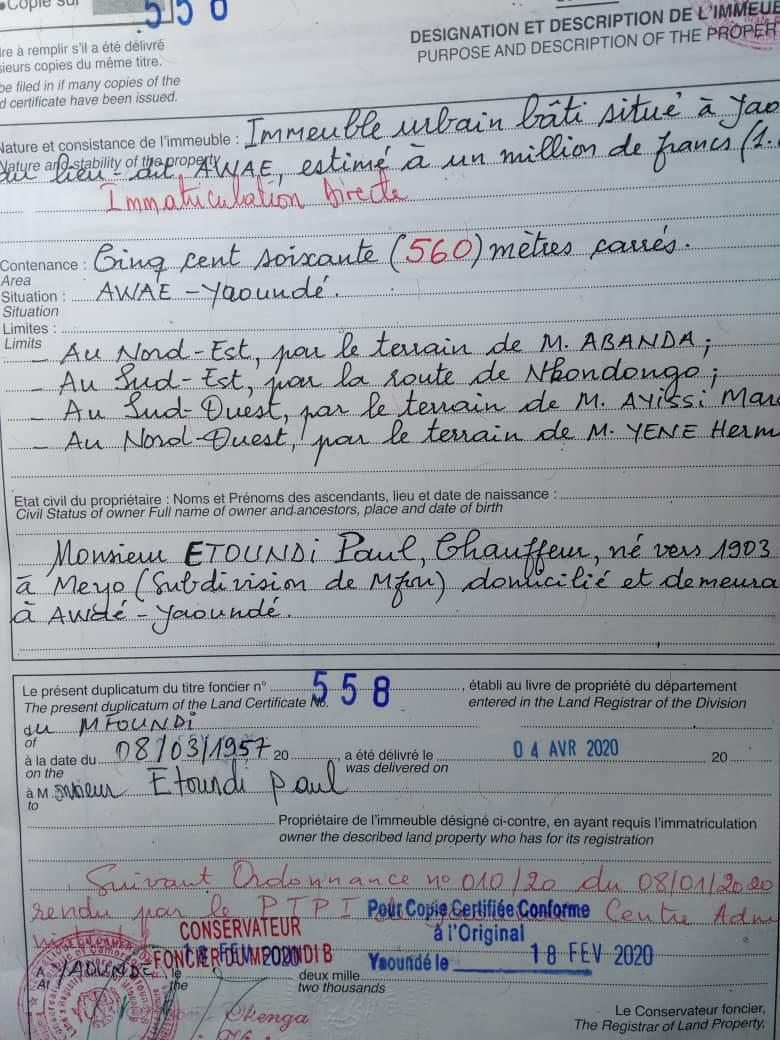 Copie sur
558
DESIGNATION ET DESCRIPTION DE L'IMMEUB
PURPOSE AND DESCRIPTION OF THE PROPER
ire à remplir s'il a été délivré
sieurs copies du même titre.
be filed in if many copies of the
d certificate have been issued.
Nature et consistance de l'immeuble : Immeuble urbain bâti situé à Yao
Nature and stability of the property
au lieu-dit AWAE, estimé à un million de francs (1.
Immatriculation Directe
Contenance : Cinq cent soixante (560) mètres carrés.
Area
Situation : AWAE - Yaoundé.
Situation
Limites :
Limits
- Au Nord-Est, par le terrain de M. ABANDA;
- Au Sud-Est, par la route de Nkondongo;
- Au Sud-Ouest, par le terrain de M. AYISSI Marc
- Au Nord-Ouest, par le terrain de M. YENE Herm
Etat civil du propriétaire : Noms et Prénoms des ascendants, lieu et date de naissance :
Civil Status of owner Full name of owner and ancestors, place and date of birth
Monsieur ETOUNDI Paul, Chauffeur, né vers 1903
à Meyo (Subdivision de Mfou) domicilié et demeura
à Awaé - Yaoundé.
Le présent duplicatum du titre foncier n° 558, établi au livre de propriété du département
The present duplicatum of the Land Certificate No. entered in the Land Registrar of the Division
du MFOUNDI
of
à la date du 08/03/1957 20, a été délivré le 04 AVR 2020 20
on the was delivered on
à Monsieur Etoundi Paul
to
Propriétaire de l'immeuble désigné ci-contre, en ayant requis l'immatriculation
owner the described land property who has for its registration
Suivant Ordonnance no 010/20 du 08/01/2020
rendu par le PTPI Centre Adm
Pour Copie Certifiée Conforme
à l'Original
Yaoundé le 18 FEV 2020
CONSERVATEUR
FONCIER DU MFOUNDI B
18 FEV 2020
A YAOUNDE le deux mille
At the two thousands
Le Conservateur foncier,
The Registrar of Land Property,